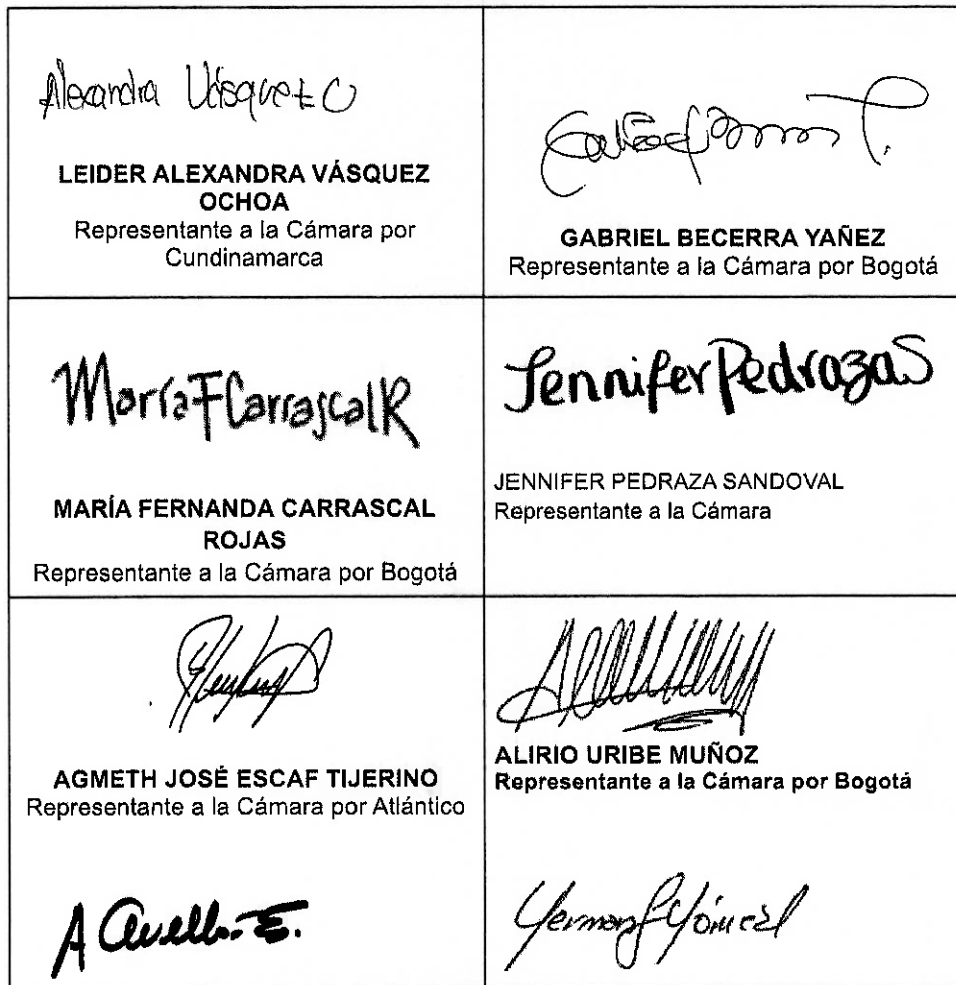 Alexandra Vásquez O
LEIDER ALEXANDRA VÁSQUEZ
OCHOA
Representante a la Cámara por
Cundinamarca
GABRIEL BECERRA YAÑEZ
Representante a la Cámara por Bogotá
María F Carrascal R
MARÍA FERNANDA CARRASCAL
ROJAS
Representante a la Cámara por Bogotá
Jennifer Pedraza S
JENNIFER PEDRAZA SANDOVAL
Representante a la Cámara
AGMETH JOSÉ ESCAF TIJERINO
Representante a la Cámara por Atlántico
ALIRIO URIBE MUÑOZ
Representante a la Cámara por Bogotá